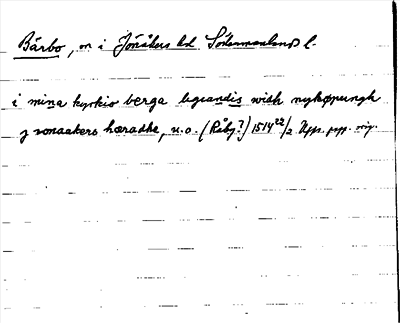 Bärbo, sn i Jönåkers hd Södermanlands l.
i mina kyrkio berga legiandis widh nykøpungh
j ronaakers hæradhe, u.o. (Råby?) 1514 22/2 Upps. papp. orig.